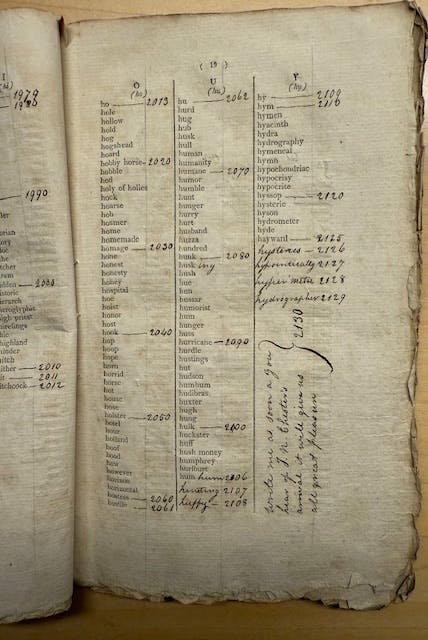 I
1979
1990
orian
ory
2000
istoric
ierarch
high priest
hirelings
highland
hither 2010
2011
hitchcock 2012
( 19 )
O
(ho)
ho 2013
hole
hollow
hold
hog
hogshead
hoard
hobby horse 2020
hobble
hod
holy of holies
hock
hoarse
hob
hosmer
home
homemade
homage 2030
hone
honest
honesty
honey
hospital
hoe
hoist
honor
host
hook 2040
hop
hoop
hope
horn
horrid
horse
hot
house
hose
holster 2050
hotel
hour
holland
hoof
hood
how
however
horison
horizontal
hostess 2060
hostile 2061
U
(hu)
hu 2062
hurd
hug
hub
husk
hull
human
humanity
humane 2070
humor
humble
hunt
hunger
hurry
hurt
husband
huzza
hundred
hunk 2080
husk ing
hush
hue
hun
hussar
humorist
hum
hunger
huss
hurricane 2090
hurdle
hustings
hut
hudson
humhum
hudibras
huxter
hugh
hung
hulk 2100
huckster
huff
hush money
humphrey
hurlburt
hum 2106
hunting 2107
huffy 2108
Y
(hy)
hy 2109
hym 2110
hymen
hyacinth
hydra
hydrography
hymeneal
hymn
hypochondriac
hypocrisy
hypocrite
hyssop 2120
hysteric
hyson
hydrometer
hyde
hayward 2125
hysterics 2126
hypocritically 2127
hyper metre 2128
hydrographer 2129
write me as soon a you
hear of J. R. Chester's
arrival it will give us
all great pleasure
2130